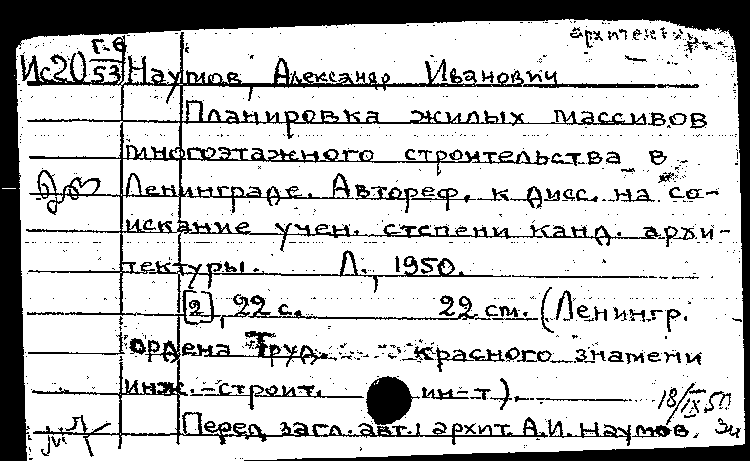 архитектур
Ис20 Г-6/53 Наумов, Александр Иванович
Планировка жилых массивов
многоэтажного строительства в
Ленинграде. Автореф. к дисс. на со-
искание учен. степени канд. архи-
тектуры. Л., 1950.
[2], 22 с. 22 см. (Ленингр.
ордена Труд. красного знамени
инж.-строит. ин-т).
18/IX 50
Перед загл. авт.: архит. А.И. Наумов.